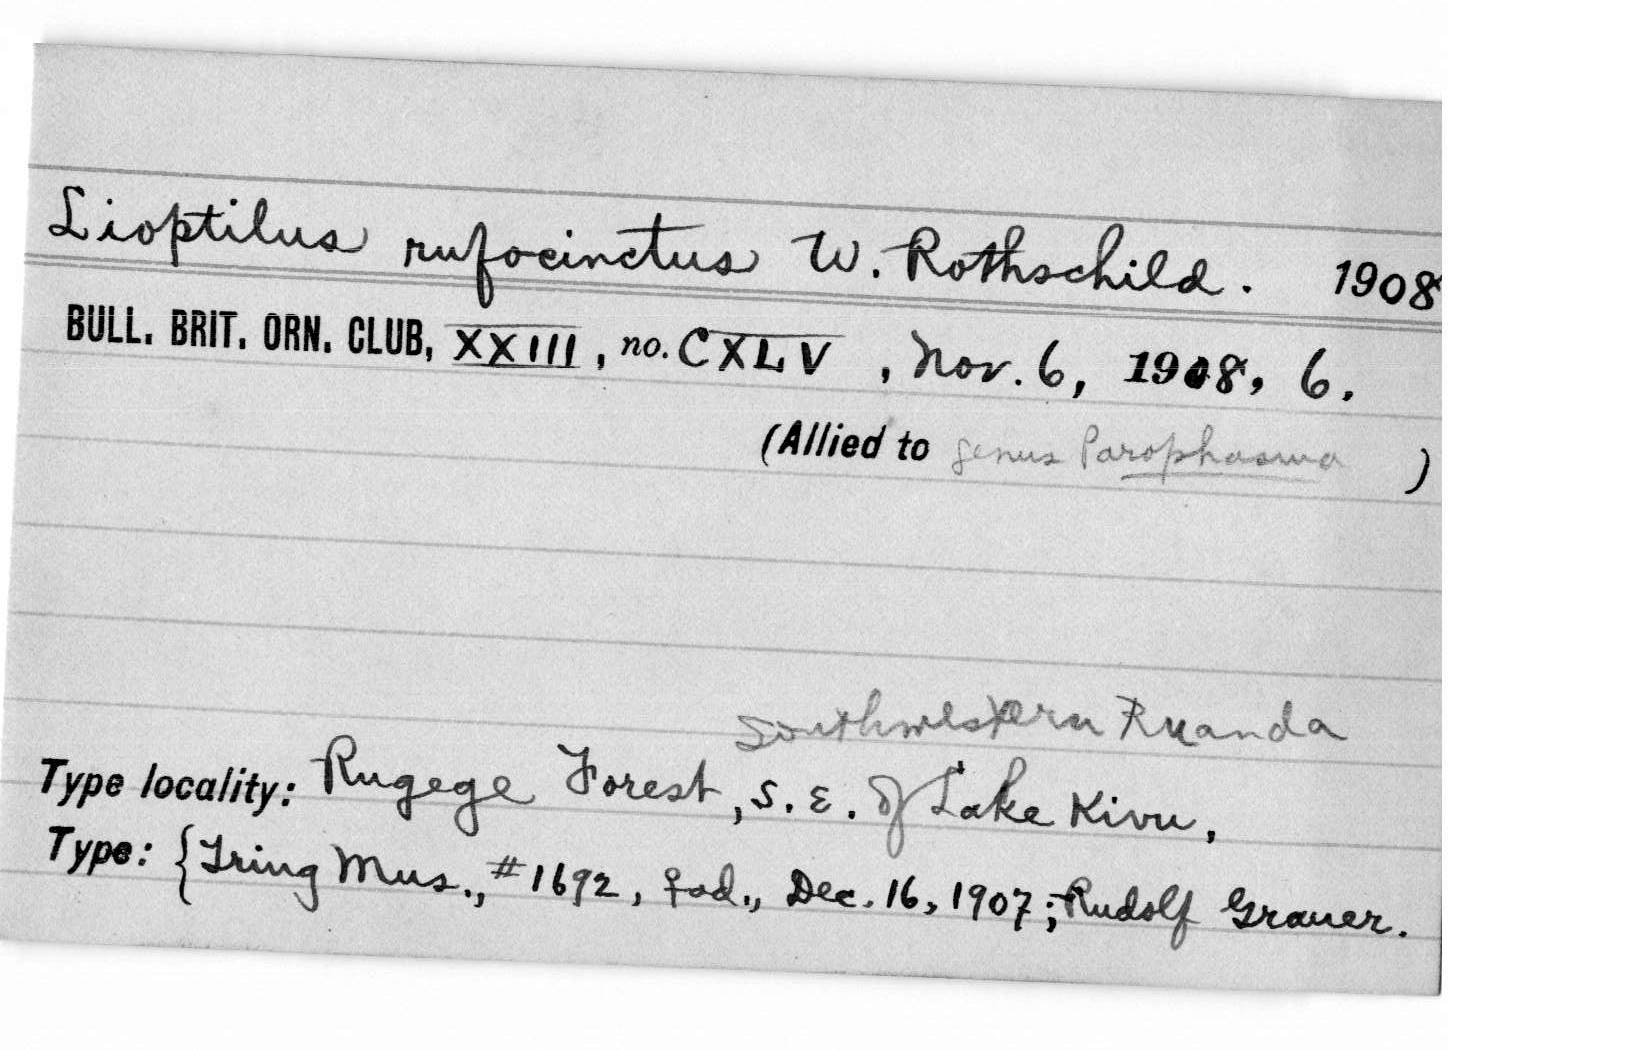 Lioptilus rufocinctus W. Rothschild. 1908
BULL. BRIT. ORN. CLUB, XXIII, no. CXLV, Nov. 6, 1908, 6.
(Allied to genus Parophasma )
Southwestern Ruanda
Type locality: Rugege Forest, S.E. of Lake Kivu,
Type: {Tring Mus., #1692, ♀ad., Dec. 16, 1907; Rudolf Grauer.